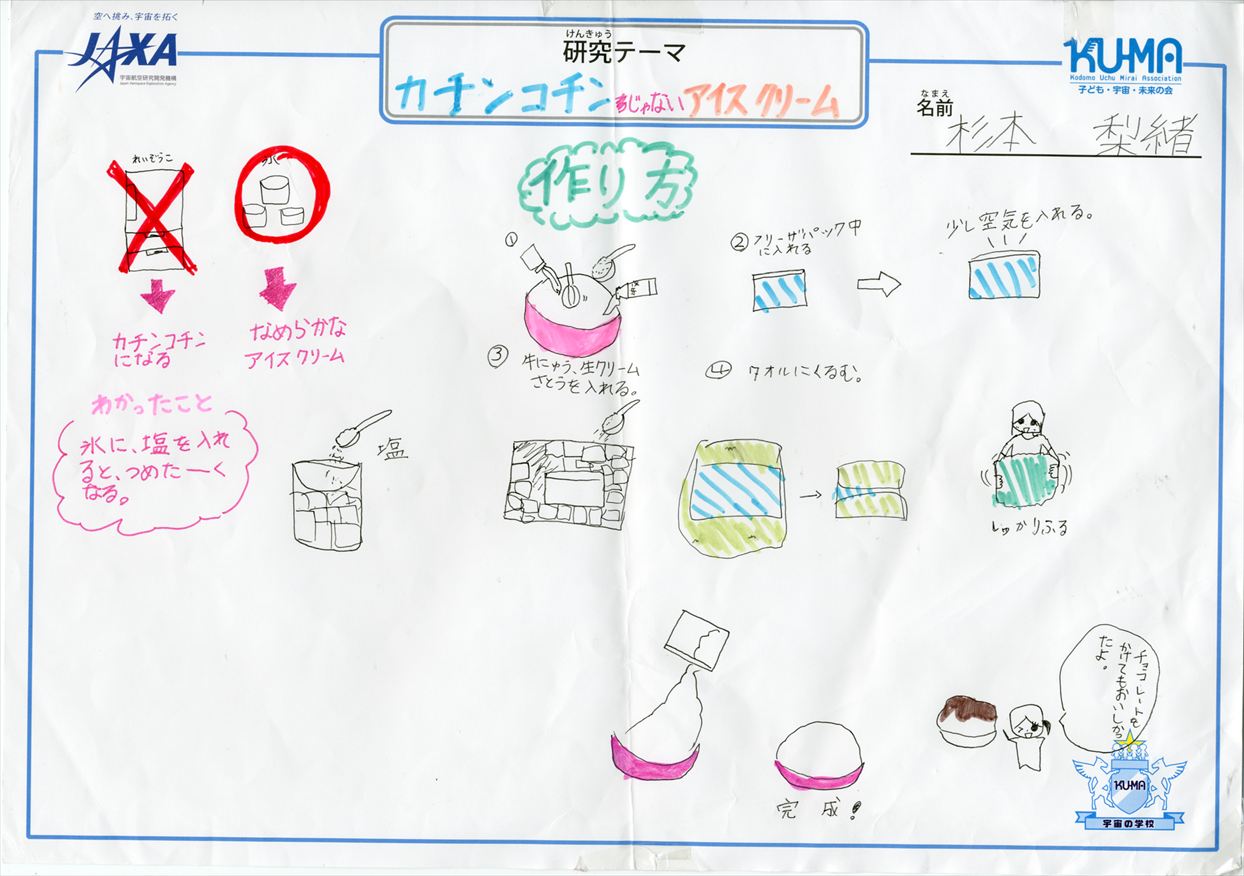 空へ挑み、宇宙を拓く
JAXA
宇宙航空研究開発機構
Japan Aerospace Exploration Agency
けんきゅう
研究テーマ
カチンコチンじゃないアイスクリーム
KU-MA
Kodomo Uchu Mirai Association
子ども・宇宙・未来の会
なまえ
名前
杉本 梨緒
れいぞうこ
カチンコチン
になる
なめらかな
アイスクリーム
わかったこと
氷に、塩を入れ
ると、つめたーく
なる。
塩
作り方
①
牛にゅう、生クリーム
さとうを入れる。
②フリーザパック中
に入れる
少し空気を入れる。
③
④ タオルにくるむ。
しっかりふる
完成!
チョコレートを
かけてもおいしかっ
たよ。
KU-MA
宇宙の学校